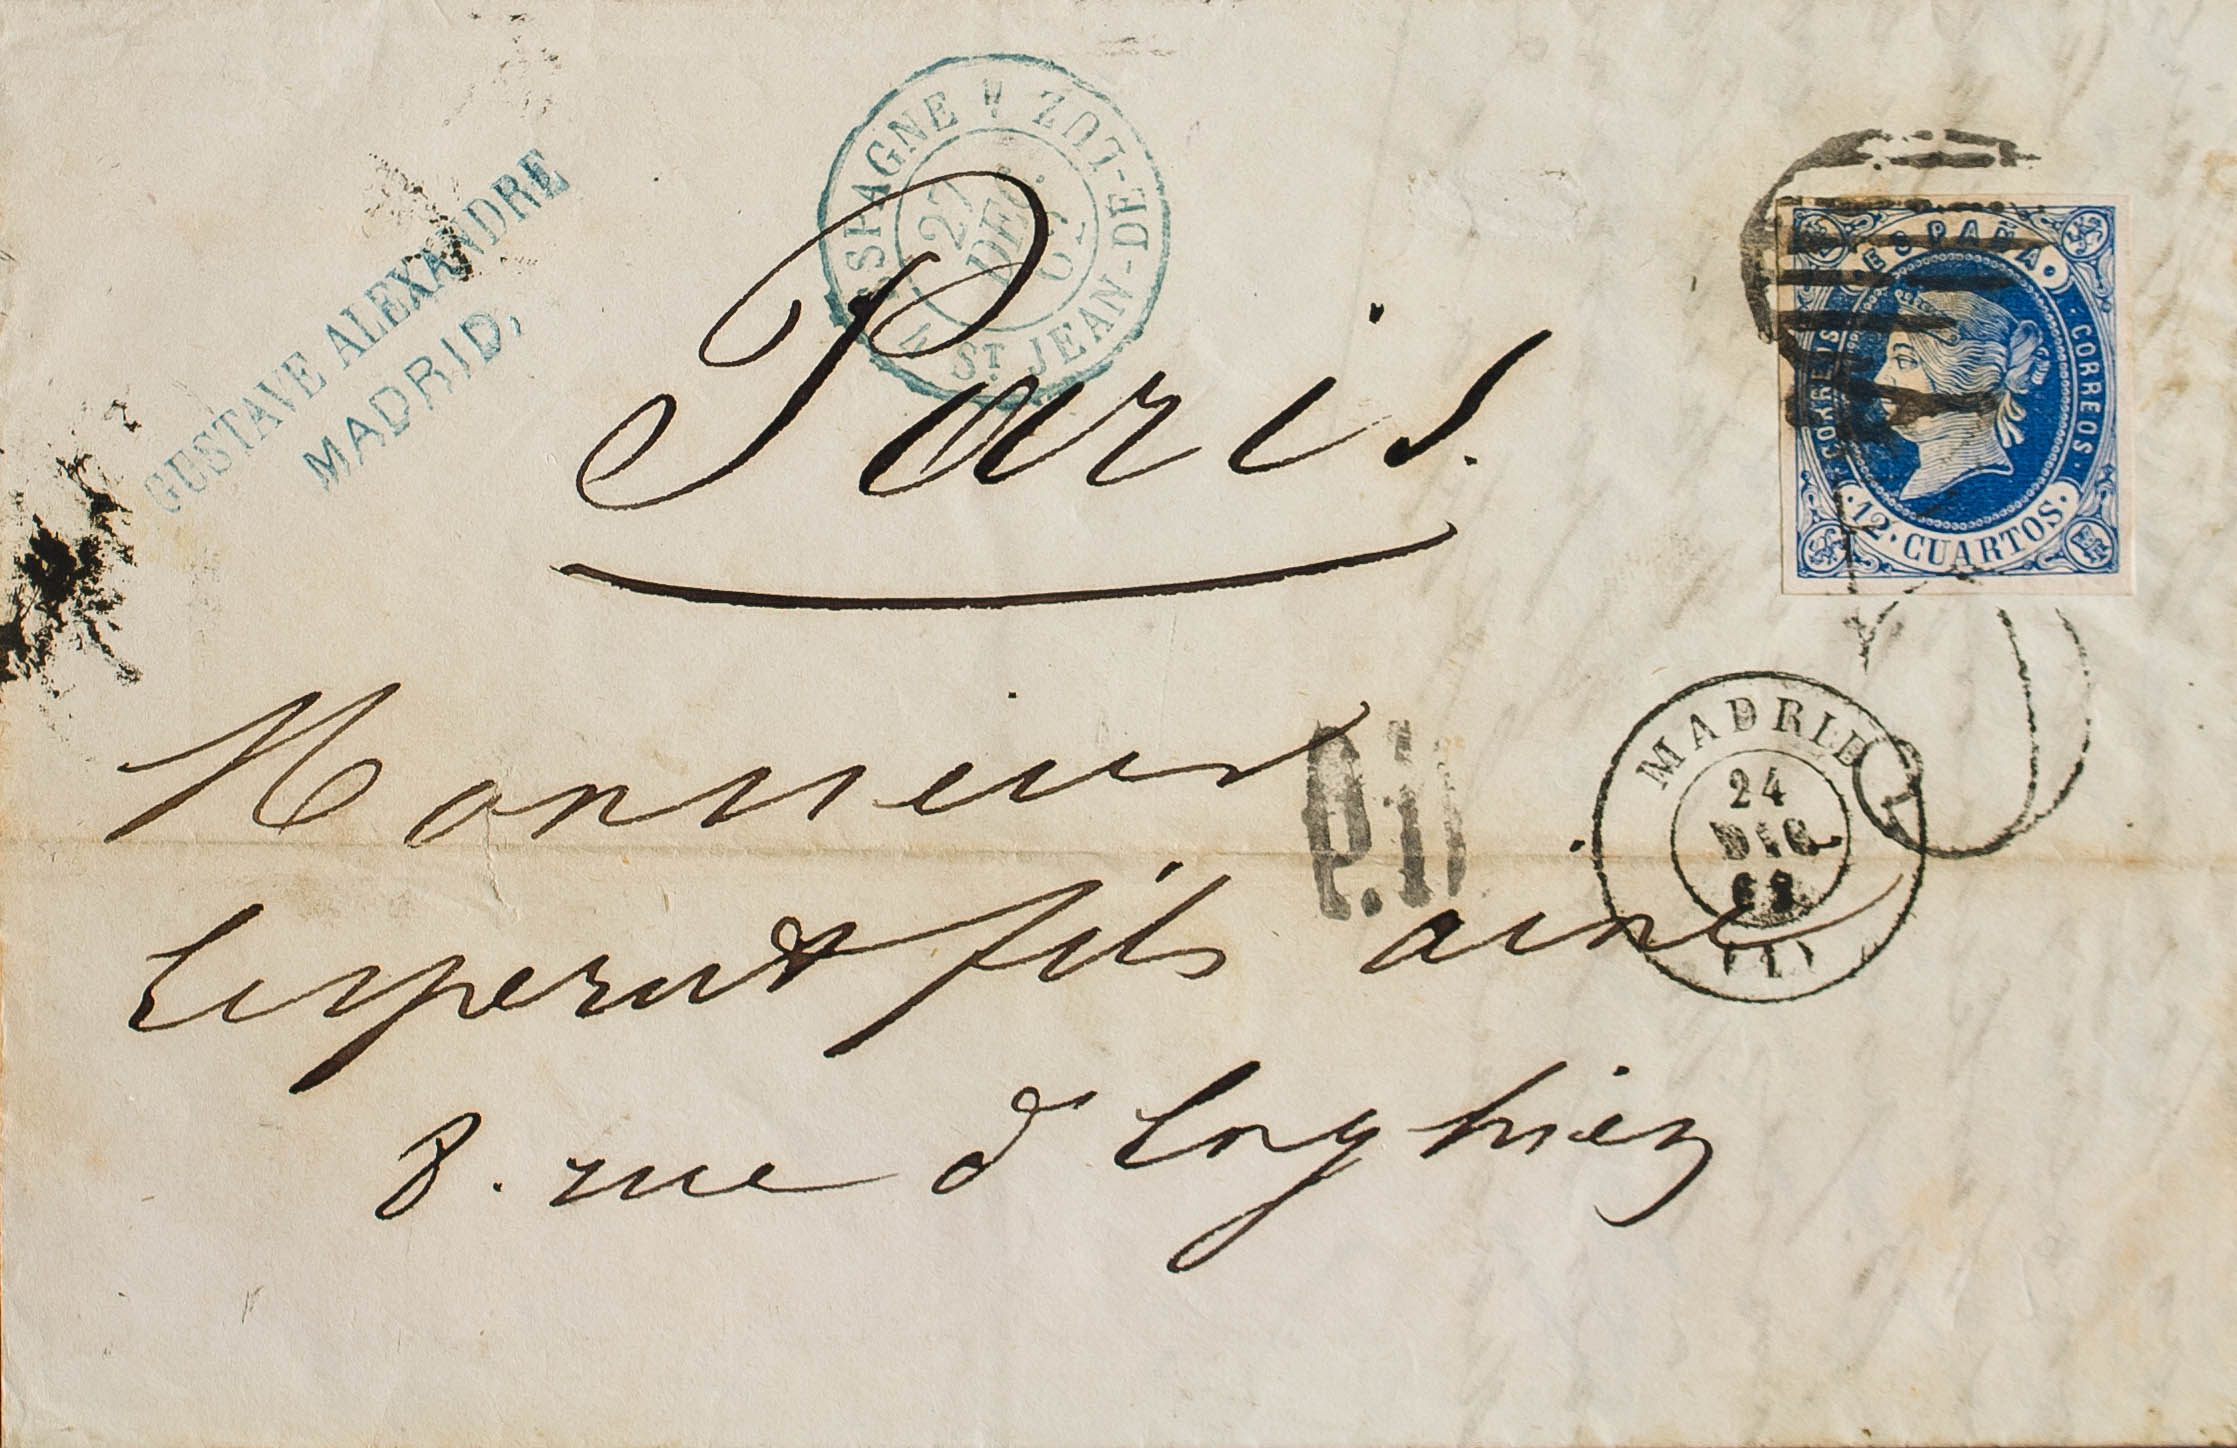 GUSTAVE ALEXANDRE
MADRID,
ESPAGNE ST JEAN-DE-LUZ
27
DEC.
Paris.
ESPAÑA
CORREOS
CORREOS
12 CUARTOS
Monsieur
P.
MADRID
24
DIC
(1)
fils ainé
8. rue d'Enghien